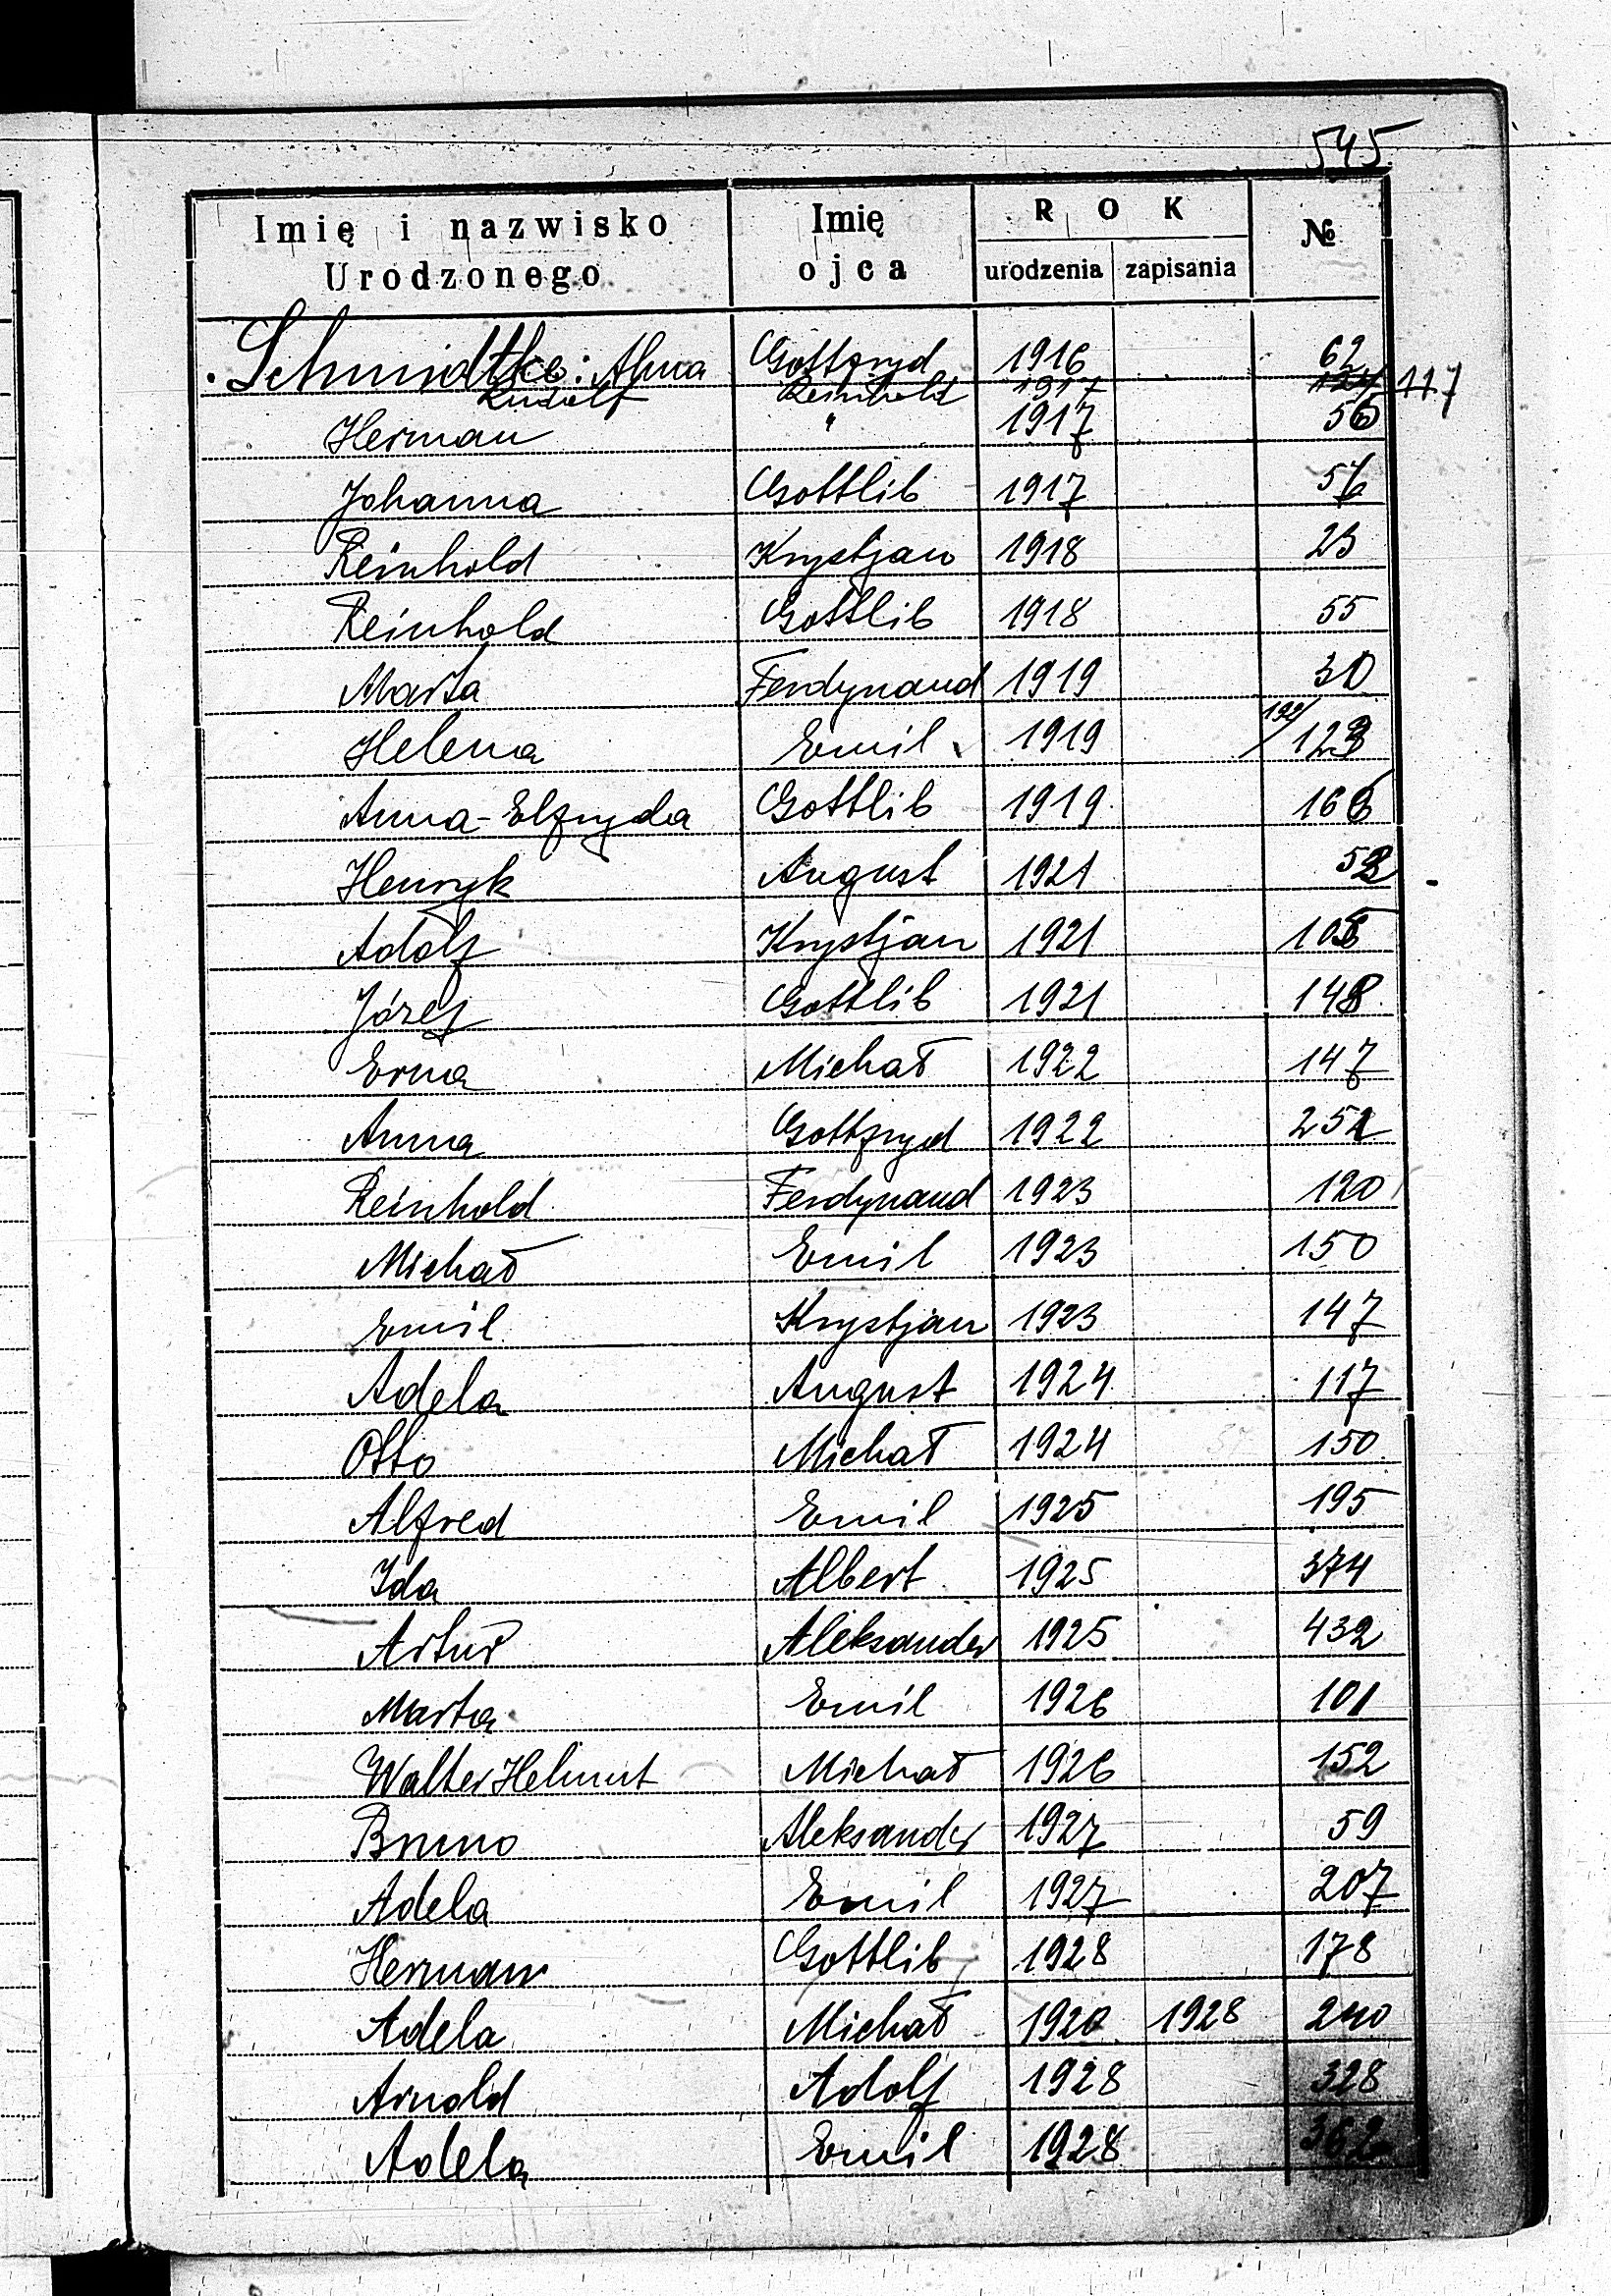 545
Imię i nazwisko Urodzonego Imię ojca ROK urodzenia zapisania №
Schmidtke: Alma Gottfryd 1916 62
Rudolf Reinhold 1917 124 117
Herman " 1917 56
Johanna Gottlib 1917 57
Reinhold Krystjan 1918 23
Reinhold Gottlib 1918 55
Marta Ferdynand 1919 30
Helena Emil 1919 192/123
Anna-Elfryda Gottlib 1919 166
Henryk August 1921 52
Adolf Krystjan 1921 105
Józef Gottlib 1921 148
Erna Michał 1922 147
Anna Gottfryd 1922 252
Reinhold Ferdynand 1923 120
Michał Emil 1923 150
Emil Krystjan 1923 147
Adela August 1924 117
Otto Michał 1924 150
Alfred Emil 1925 195
Ida Albert 1925 374
Artur Aleksander 1925 432
Marta Emil 1926 101
Walter Helmut Michał 1926 152
Bruno Aleksander 1927 59
Adela Emil 1927 207
Herman Gottlib 1928 178
Adela Michał 1920 1928 240
Arnold Adolf 1928 328
Adela Emil 1928 362